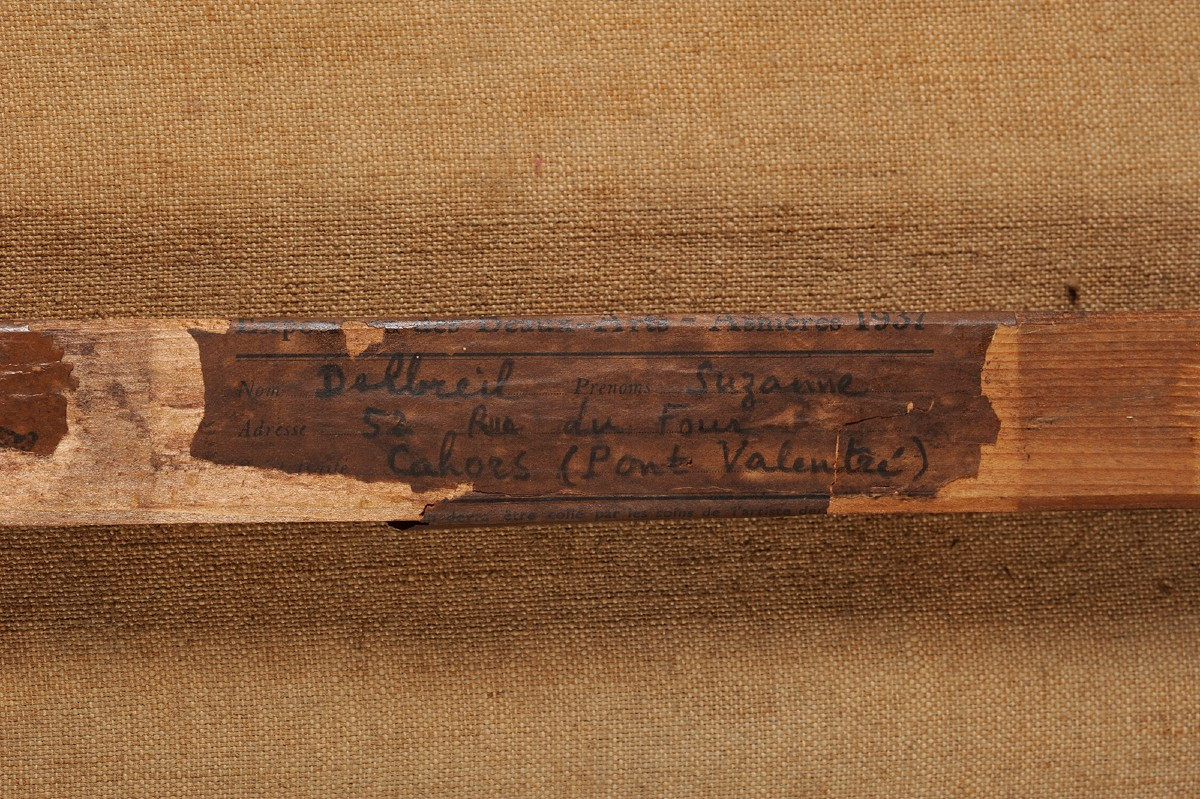 des Beaux-Arts - Asnières 1937
Nom Delbreil Prénoms Suzanne
Adresse 52 Rue du Four
Cahors (Pont Valentré)
être collé par les soins de l'artiste